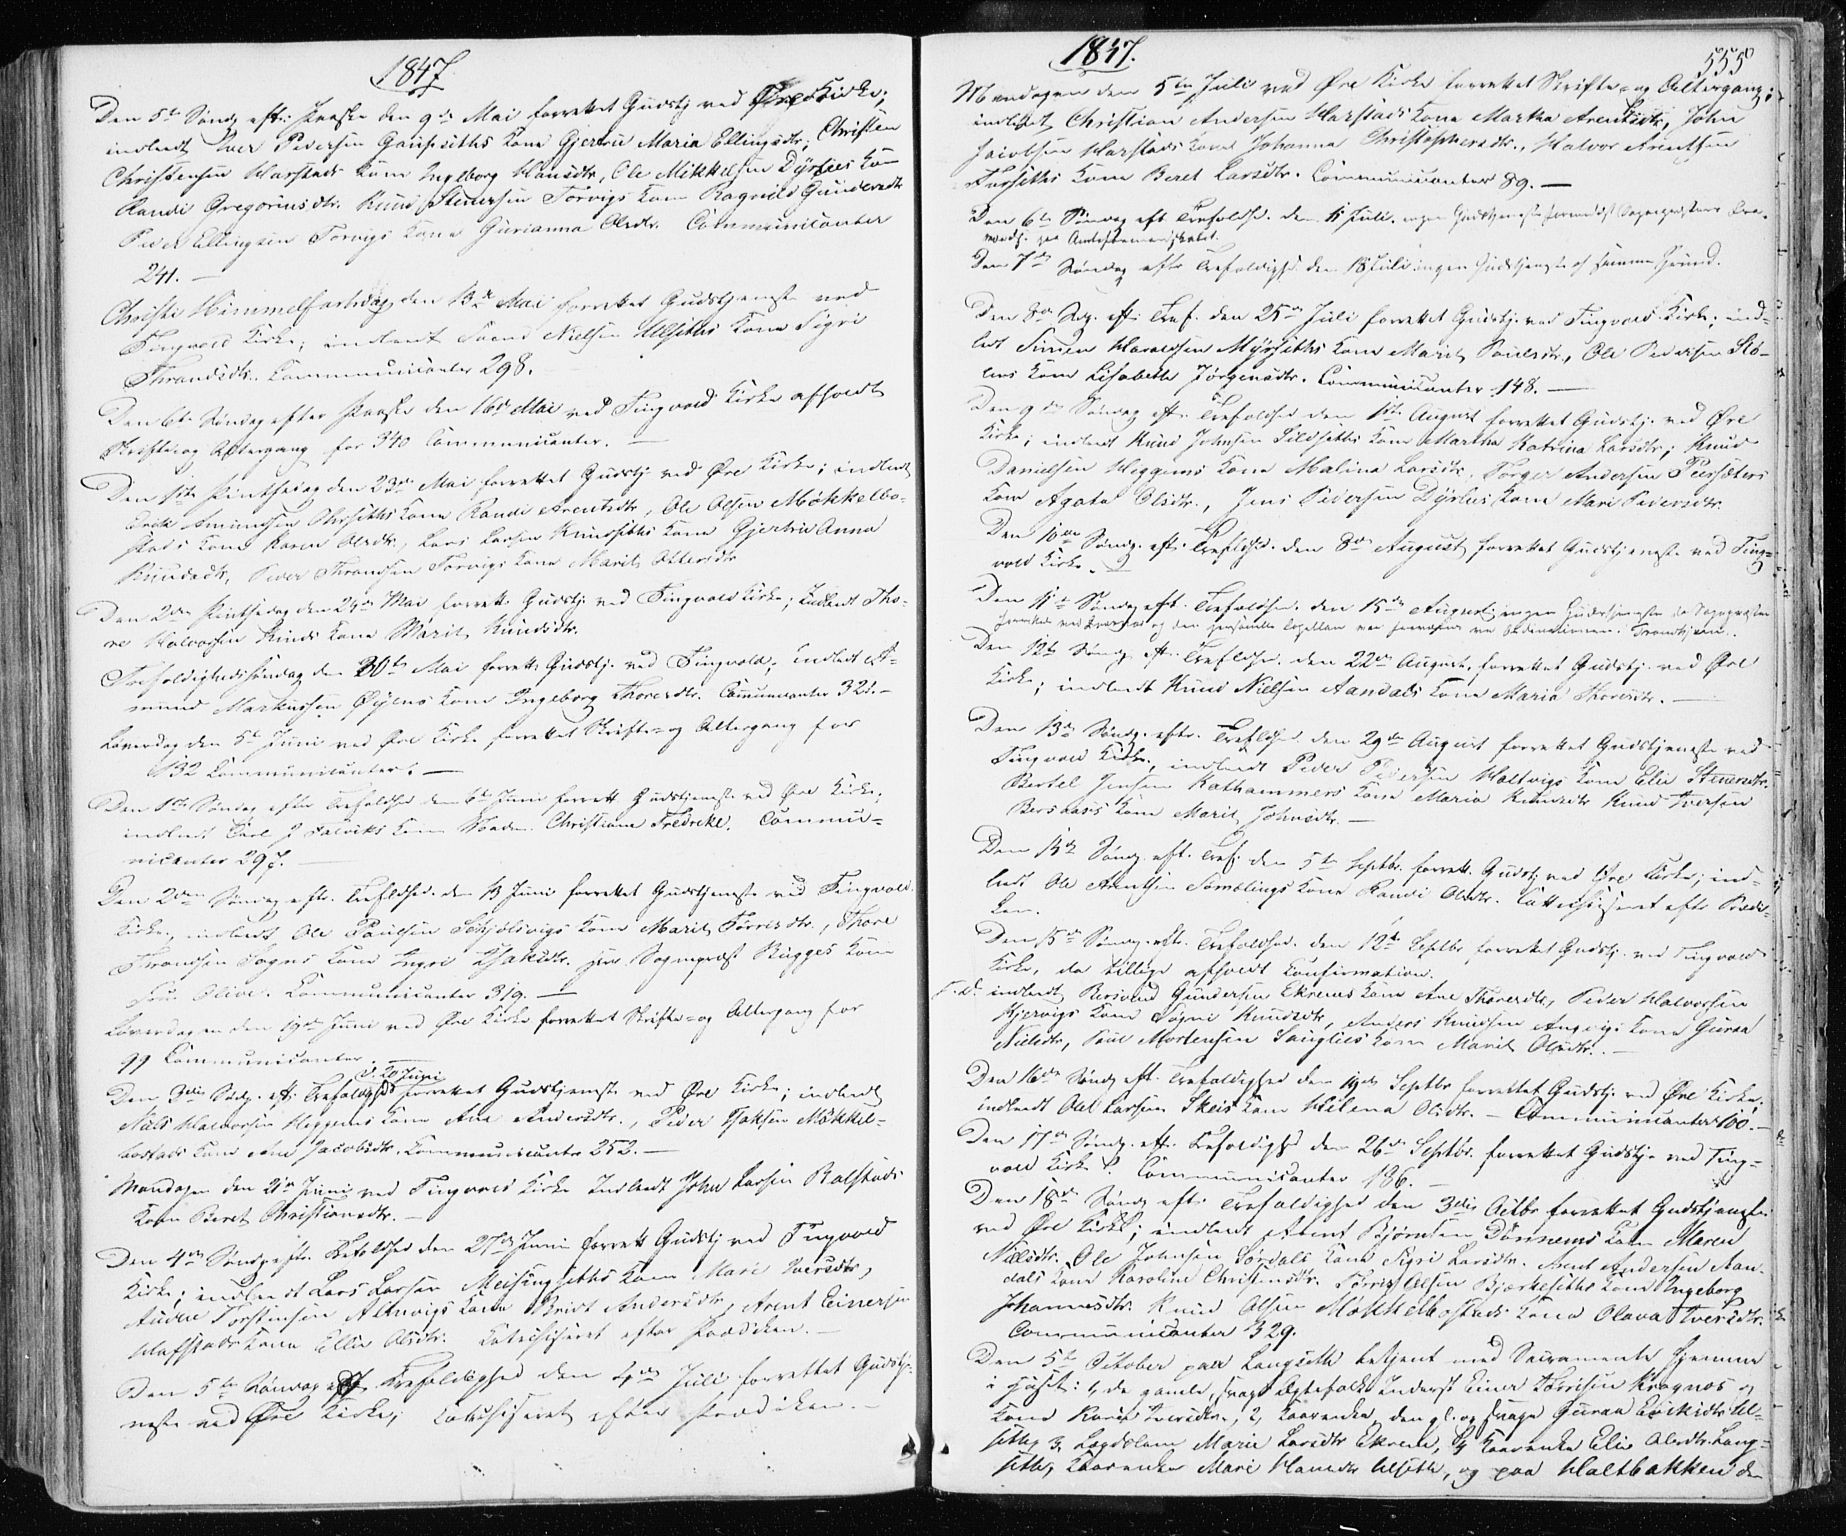 1847.
Den 5te Søndg eft. Paaske den 9de Mai forrettet Gudstj ved Øre Kirke;
indledt Iver Pedersen Gaupsæths Kone Gjertru Maria Ellingsdtr, Christen
Christensen Harstads Kone Ingeborg Hansdtr, Ole Mikkelsen Dyrlies Kone
Randi Gregoriusdtr. Knud Steenersen Torvigs Kone Ragnild Gundersdtr
Peder Ellingsen Torvigs Kone Gurianna Olsdtr. Communicanter
241. —
Christi Himmelfartsdag den 13de Mai forrettet Gudstjeneste ved
Tingvold Kirke; indledt Svend Nielsen Ulsæths Kone Sigri
Thrandsdtr. Communicanter 298.
Den 6te Søndag efter Paaske den 16de Mai ved Tingvold Kirke afholdt
Skrifte og Altergang for 340 Communicanter. —
Den 1ste Pintsedag den 23de Mai forrettet Gudstj ved Øre Kirke; indledt
Amundsen Kone Randi Arentsdtr, Ole Olsen Møkkelbo-
stads Kone Karen Olsdtr, Lars Larsen Knudsæths Kone Gjertru Anna
Knudsdtr, Peder Thrandsen Torvigs Kone Marit Ottersdtr
Den 2den Pintsedag den 24de Mai forrett. Gudstj ved Tingvold Kirke; indledt Tho-
re Halvorsen Kone Marit Knudsdtr.
Trefoldighedssøndag den 30te Mai forrett. Gudstj. ved Tingvold; indledt A-
mund Markussen Øyens Kone Ingeborg Thoresdtr. Communicanter 321. —
Løverdag den 5te Juni ved Øre Kirke forrettet Skrifte- og Altergang for
132 Communicanter. —
Den 1ste Søndag efter Trefoldhed den 6te Juni forrett Gudstjeneste ved Øre Kirke;
indledt Carl J Kone Madm. Christiane Fredrike. Commu-
nicanter 297. —
Den 2den Søndag eftr. Trefldhed. den 13 Juni forrettet Gudstjeneste ved Tingvold
Kirke, indledt Ole Paulsen Schjølsvigs Kone Marit Torresdtr., Thore
Thrandsen Kone Ingri Isaksdtr. Hr. Sognepræst Bugges Kone
Fru Olive. Communicanter 319. —
Løverdagen den 19de Juni ved Øre Kirke forrettet Skrifte- og Altergang for
99 Communicanter. —
d. 20 Juni
Den 3die Søndg. eft. Trefoldighd forrettet Gudstjeneste ved Øre Kirke; indledt
Niels Halvorsen Heggems Kone Ane Andersdtr., Peder Isaksen Møkkel-
bostads Kone Ane Jacobsdtr. Communicanter 252. —
Mandagen den 21de Juni ved Tingvold Kirke indledt John Larsen Rolstads
Kone Beret Christiansdtr. —
Den 4de Søndg eftr. Trefoldhed den 27de Juni forrett Gudstj ved Tingvold
Kirke; indledt Lars Larsen Meisingsæths Kone Mari Iversdtr,
Torstensen Kone Brit Andersdtr, Arent Einersen
Hafstads Kone Elie Olsdtr. Catechiseret efter Prædiken. —
Den 5te Søndag eft Trefoldighed den 4de Juli forrettet Gudstje-
neste ved Øre Kirke; Catechiseret efter Prædiken. —
1847.
555
Mandagen den 5te Juli ved Øre Kirke forrettet Skrifte- og Altergang;
indledt Christian Andersen Harstads Kone Martha Arentsdtr, John
Jacobsen Harstads Kone Johanna Christophersdtr., Halvor Arentsen
Kone Beret Larsdtr. Communicanter 89. —
Den 6te Søndag eft Trefoldhd. den 11 Juli ingen Gudstjeneste formedelst Sognepræstens Fra-
vær paa Amtsformandskabet.
Den 7de Søndag efter Trefoldighd. den 18 Juli ingen Gudstjeneste af samme Grund.
Den 8de Søg. eft. Tref. den 25de Juli forrettet Gudstj. ved Tingvold Kirke; ind-
ledt Simen Haraldsen Myrsæths Kone Marit Poulsdtr., Ole Pedersen Stø-
lens Kone Lisabeth Jørgensdtr. Communicanter 148. —
Den 9de Søndag eft. Trefoldhd den 1ste August forrettet Gudstj. ved Øre
Kirke; indledt Knud Johnsen Sildsæths Kone Martha Katrina Larsdtr; Knud
Danielsen Heggems Kone Malina Larsdtr, Torger Andersen
Kone Agata Olsdtr., Jens Pedersen Dyrlies Kone Mari Pedersdtr.
Den 10de Søndg. eft. Trefldhd. den 8de August forrettet Gudstjeneste ved Ting-
vold Kirke. —
Den 11te Søndg eft. Trefoldhd. den 15de August ingen Gudstjeneste da Sognepræsten
og den personelle Capellan var ved Ordinationen i Trondhjem.
Den 12te Søndg eft. Trefldhd. den 22de August forrettet Gudstj. ved Øre
Kirke; indledt Knud Nielsen Aandals Kone Maria Thoresdtr. —
Den 13de Søndg. eftr. Trefldhd. den 29de August forrettet Gudstjeneste ved
Tingvold Kirke, indledt Peder Pedersen Holtvigs Kone Elie Steneredtr.
Bertel Jensen Kathammers Kone Maria Knudsdtr Knud Iversen
Bersaass Kone Marit Johnsdtr. —
Den 14de Søndg. eft. Tref. den 5te Septbr. forrett. Gudstj ved Øre Kirke; ind-
ledt Ole Arentsen Kone Randi Olsdtr. Catechiseret eftr Prædi-
ken.
Den 15de Søndg. eftr. Trefoldhd. den 12te Septbr forrettet Gudstj. ved Tingvold
Kirke, da tillige afholdt Confirmation.
S. D. indledt Bersvend Gundersen Ekrems Kone Ane Thoresdtr, Peder Halvorsen
Hjervigs Kone Sigri Knudsdtr, Anders Knudsen Angvigs Kone Guraa
Nielsdtr, Paul Mortensen Sauglies Kone Marit Olsdtr. —
Den 16de Søndg eft. Trefoldighed den 19de Septbr forrettet Gudstj. ved Øre Kirke;
indledt Ole Larsen Skeis Kone Hilena Olsdtr. — Communicanter 100. —
Den 17de Søndg. eft. Trefoldighd den 26de Septbr. forrettet Gudstj. ved Ting-
vold Kirke. Communicanter 196. —
Den 18de Søndg eftr Trefoldighed den 3die Octbr forrettet Gudstjeneste
ved Øre Kirke; indledt Arent Bjørnsen Dønnems Kone Maren
Nielsdtr. Ole Johnsen Sørdals Kone Sigri Larsdtr. Arent Andersen Aan-
dals Kone Karoline Christensdtr. Torris Olsen Bjerkesæths Kone Ingeborg
Johannesdtr. Knud Olsen Møkkelbostads Kone Olava Iversdtr.
Communicanter 329.
Den 5te October paa Langseth betjent med Sacramentet hjemme
i Huset: 1, de gamle, svage Ægtefolk Inderst Einer Torrisen Kragnes og
Kone Marit Iversdtr., 2, Kaarenke den gl. og svage Guraa Ul-
seth, 3, Lægdslem Marie Larsdtr Ekrem, 4, Kaarenke Elie Olsdtr Lang-
seth, Kaarenke Mari Hansdtr Ulseth, og paa Holtbakken den